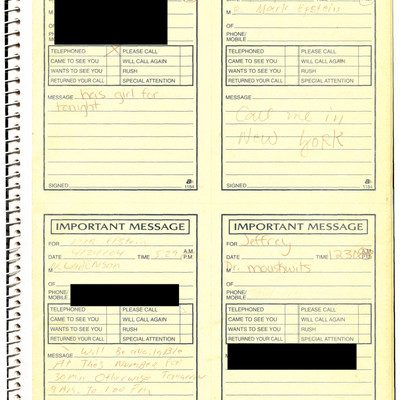 M
PHONE/
MOBILE
TELEPHONED PLEASE CALL
CAME TO SEE YOU WILL CALL AGAIN
WANTS TO SEE YOU RUSH
RETURNED YOUR CALL SPECIAL ATTENTION
MESSAGE has girl for
tonight
SIGNED
1184
M Mark Epstein
OF
PHONE/
MOBILE
TELEPHONED PLEASE CALL
CAME TO SEE YOU WILL CALL AGAIN
WANTS TO SEE YOU RUSH
RETURNED YOUR CALL SPECIAL ATTENTION
MESSAGE
Call me in
New York
SIGNED
1184
IMPORTANT MESSAGE
FOR Epstein
DATE TIME 5:29 A.M.
P.M.
M
OF
PHONE/
MOBILE
TELEPHONED PLEASE CALL
CAME TO SEE YOU WILL CALL AGAIN
WANTS TO SEE YOU RUSH
RETURNED YOUR CALL SPECIAL ATTENTION
MESSAGE Will Be
At This Number For
Otherwise Tomorrow
IMPORTANT MESSAGE
FOR Jeffrey
DATE TIME 1230
Dr.
OF
PHONE/
MOBILE
TELEPHONED PLEASE CALL
CAME TO SEE YOU WILL CALL AGAIN
WANTS TO SEE YOU RUSH
RETURNED YOUR CALL SPECIAL ATTENTION